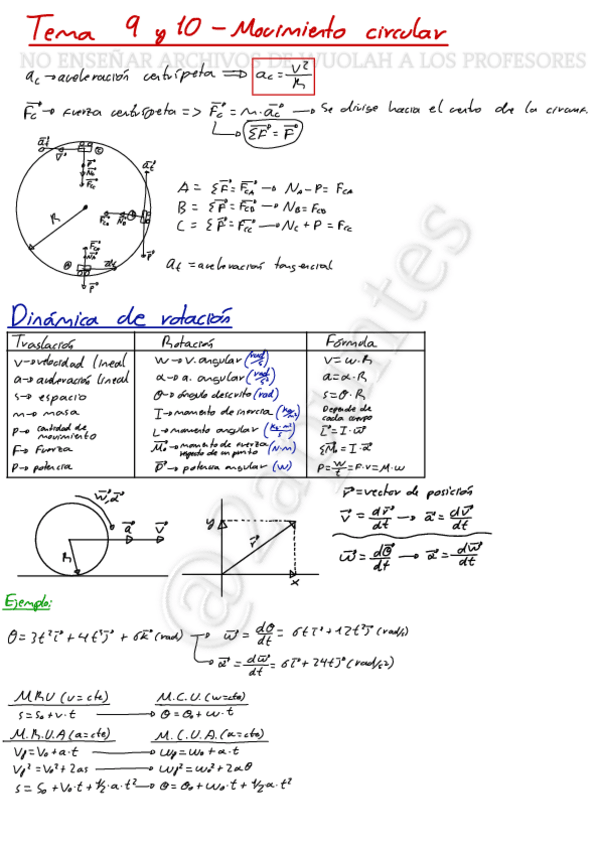 Tema 9 y 10 - Movimiento circular
NO ENSEÑAR ARCHIVOS DE WUOLAH A LOS PROFESORES
ac → aceleración centrípeta ⇒ ac = v²/R
Fc → Fuerza centrípeta => Fc = m·ac → Se dirige hacia el centro de la circunf.
ΣF = F
A = ΣF = FCA → NA - P = FCA
B = ΣF = FCB → NB = FCB
C = ΣF = FCC → NC + P = FCC
at = aceleración tangencial
R
Dinámica de rotación
Traslación Rotación Fórmula
v → velocidad lineal w → v. angular (rad/s) v = w·R
a → aceleración lineal α → a. angular (rad/s²) a = α·R
s → espacio θ → ángulo descrito (rad) s = θ·R
m → masa I → momento de inercia (kg/m²) Depende de cada cuerpo
P → cantidad de movimiento L → momento angular (kg·m²/s) L = I·w
F → Fuerza Mo → momento de fuerza respecto de un punto (N·m) ΣMo = I·α
P → potencia P → potencia angular (W) P = W/t = F·v = M·w
w, α
a v
R
y r x
r = vector de posición
v = dr/dt → a = dv/dt
w = dθ/dt → α = dw/dt
Ejemplo:
θ = 3t² i + 4t³ j + 6k (rad) → w = dθ/dt = 6t i + 12t² j (rad/s)
α = dw/dt = 6 i + 24t j (rad/s²)
M.R.U (v = cte) M.C.U. (w = cte)
s = so + v·t → θ = θo + w·t
M.R.U.A (a = cte) M.C.U.A. (α = cte)
Vf = Vo + a·t → wf = wo + α·t
Vf² = Vo² + 2as → wf² = wo² + 2αθ
s = so + Vo·t + 1/2·a·t² → θ = θo + wo·t + 1/2 α·t²
@2apuntes